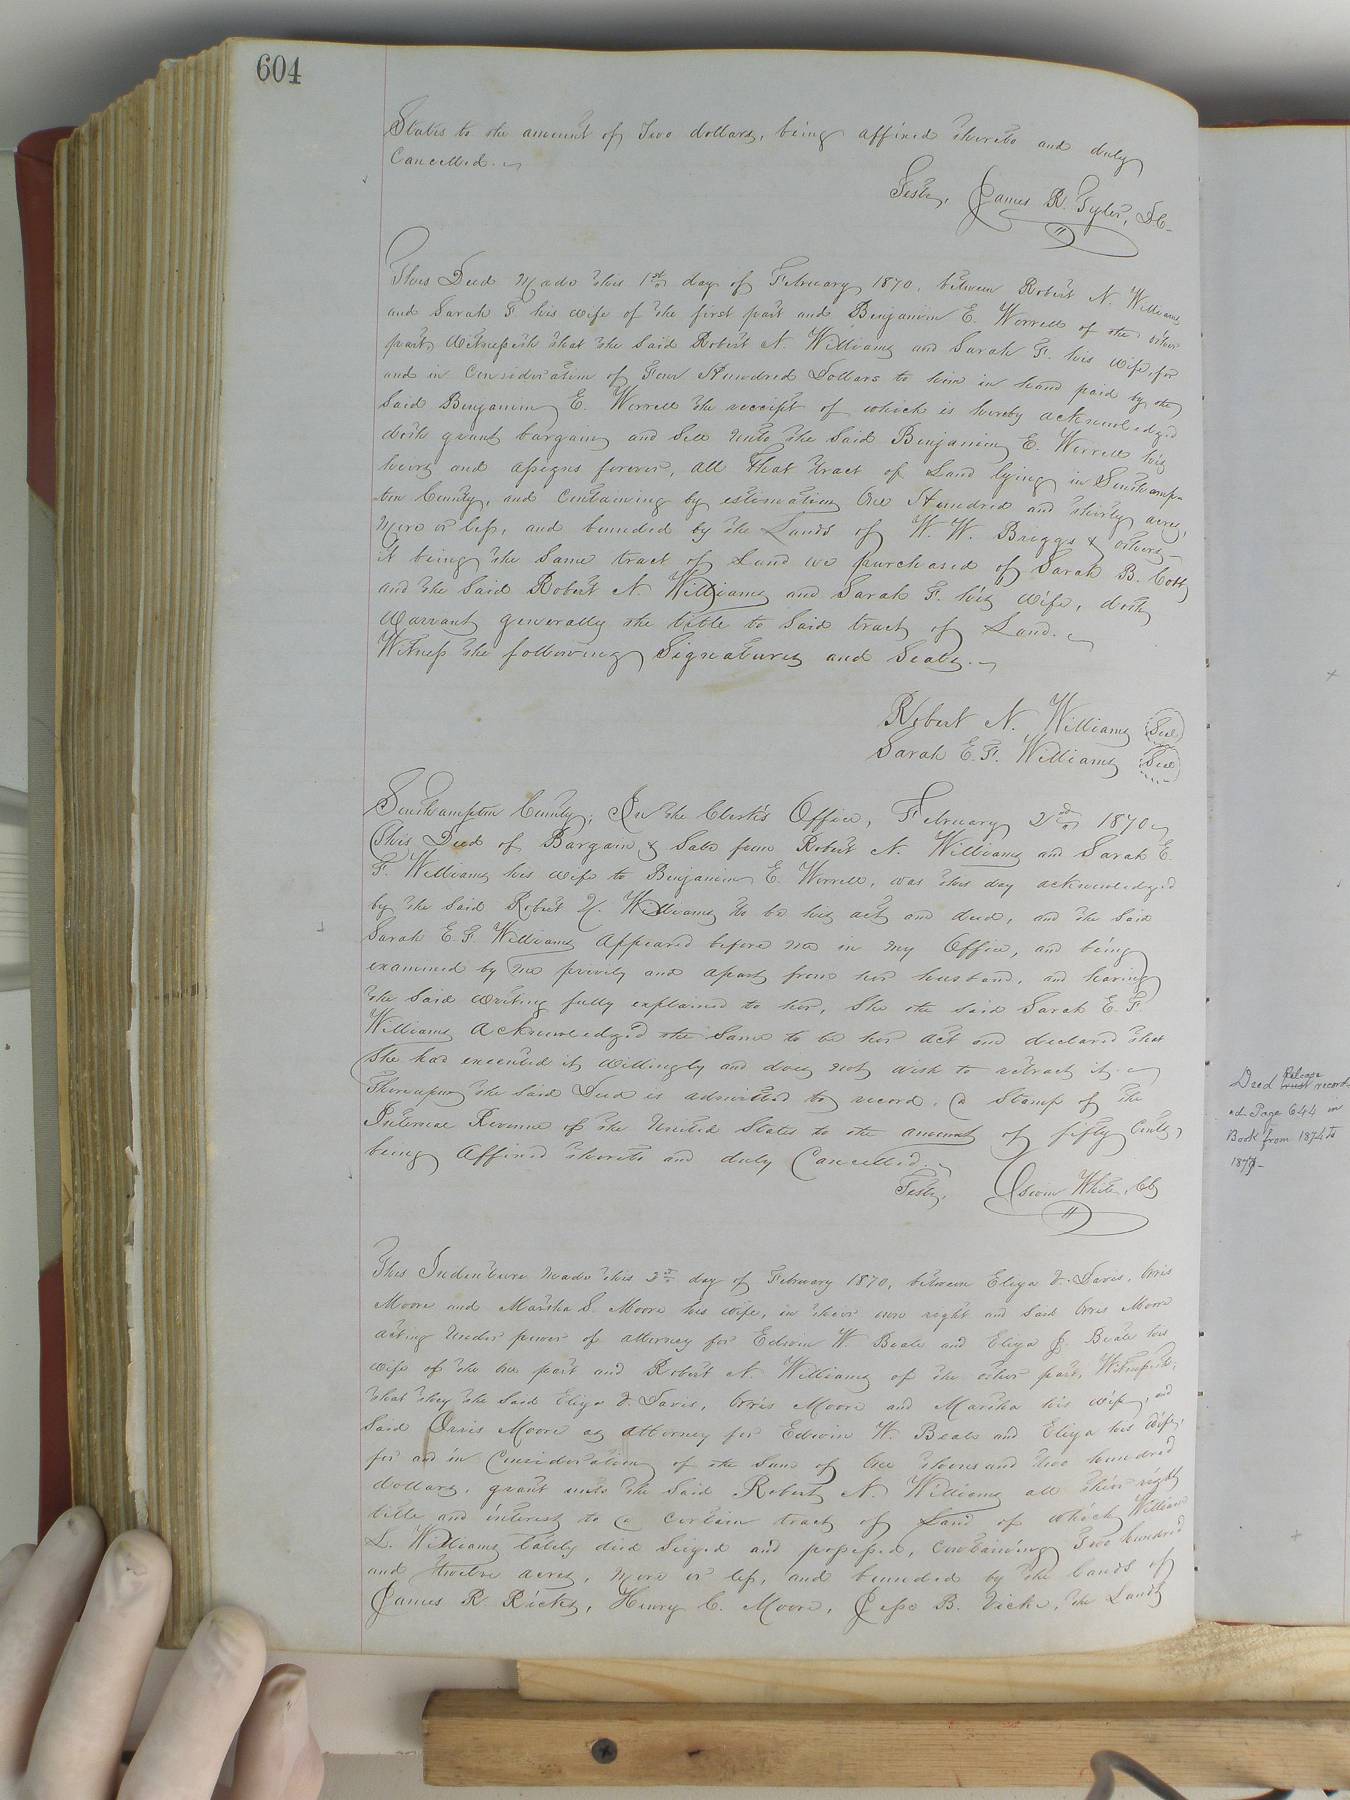 604
States to the amount of Two dollars, being affixed thereto and duly
Cancelled.
Teste, James R. Tyler, D.C.
This Deed Made this 1st day of February 1870, between Robert N. Williams
and Sarah F. his wife of the first part and Benjamin E. Worrell of the other
part, Witnesseth that the said Robert N. Williams and Sarah F. his wife, for
and in Consideration of Four Hundred Dollars to him in hand paid by the
Said Benjamin E. Worrell the receipt of which is hereby acknowledged
doth grant bargain and Sell unto the Said Benjamin E. Worrell his
heirs and assigns forever, all that tract of Land lying in Southamp-
ton County, and Containing by estimation One Hundred and thirty acres,
More or less, and bounded by the Lands of W. W. Briggs & others,
it being the Same tract of Land we purchased of Sarah B.
and the Said Robert N. Williams and Sarah F. his wife, doth
Warrant generally the title to Said tract of Land.
Witness the following Signatures and Seals.
Robert N. Williams Seal
Sarah E. F. Williams Seal
Southampton County; In the Clerk's Office, February 2nd 1870
This Deed of Bargain & Sale from Robert N. Williams and Sarah E.
F. Williams his wife to Benjamin E. Worrell, was this day acknowledged
by the Said Robert N. Williams to be his act and deed, and the Said
Sarah E. F. Williams appeared before me in my Office, and being
examined by me privily and apart from her husband, and having
the Said writing fully explained to her, She the said Sarah E. F.
Williams acknowledged the Same to be her act and declared that
She had executed it willingly and does not wish to retract it.
Thereupon the Said Deed is admitted to record, a Stamp of the
Internal Revenue of the United States to the amount of fifty Cents,
being affixed thereto and duly Cancelled.
Teste, White, Clk
This Indenture Made this 2nd day of February 1870, between Eliza J. Davis, Orris
Moore and Martha S. Moore his wife, in their own right and Said Orris Moore
acting under power of attorney for Edwin W. Beale and Eliza J. Beale his
wife of the one part and Robert N. Williams of the other part, Witnesseth:
that they the Said Eliza J. Davis, Orris Moore and Martha his wife, and
Said Orris Moore as attorney for Edwin W. Beale and Eliza his wife,
for and in Consideration of the Sum of One thousand two hundred
dollars, grant unto the Said Robert N. Williams all their right
title and interest to a Certain tract of Land of which William
L. Williams lately died Seized and possessed, Containing Two hundred
and twelve acres, More or less, and bounded by the lands of
James R. Ricks, Henry C. Moore, Jesse B. Vick, the Lands
Deed Release trust record-
ed Page 644 in
Book from 1874 to